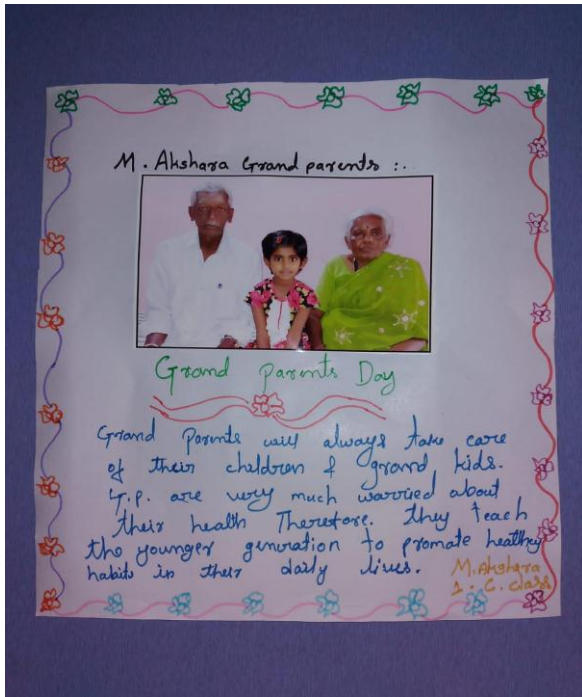 M. Akshara Grand parents :..
Grand Parents Day
Grand Parents will always take care
of their children & grand kids.
G.p. are very much warried about
their health Therefore. they teach
the younger generation to promate healthey
habits in their daily lives.
M.Akshara
1. C. class